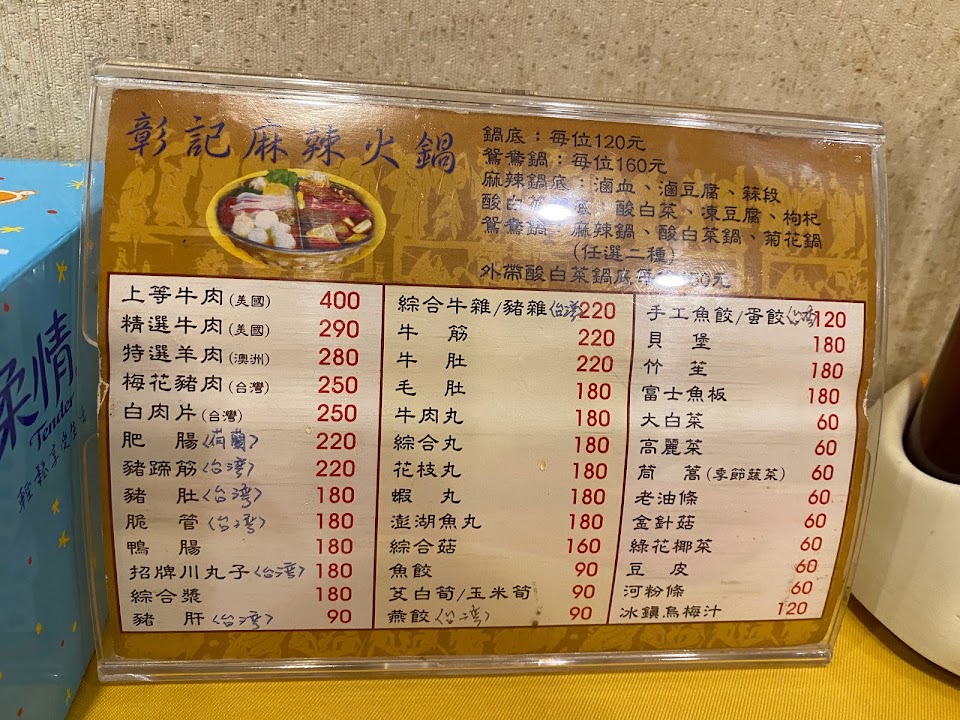 彰記麻辣火鍋
鍋底：每位120元
鴛鴦鍋：每位160元
麻辣鍋底：滷血、滷豆腐、蒜段
酸白菜 底、酸白菜、凍豆腐、枸杞
鴛鴦鍋：麻辣鍋、酸白菜鍋、菊花鍋
(任選二種)
外帶酸白菜鍋底每 50元
上等牛肉(美國) 400
精選牛肉(美國) 290
特選羊肉(澳洲) 280
梅花豬肉(台灣) 250
白肉片(台灣) 250
肥 腸(荷蘭) 220
豬蹄筋(台湾) 220
豬 肚(台湾) 180
脆 管(台湾) 180
鴨 腸 180
招牌川丸子(台湾) 180
綜合漿 180
豬 肝(台湾) 90
綜合牛雜/豬雜(台湾) 220
牛 筋 220
牛 肚 220
毛 肚 180
牛肉丸 180
綜合丸 180
花枝丸 180
蝦 丸 180
澎湖魚丸 180
綜合菇 160
魚餃 90
茭白筍/玉米筍 90
燕餃(台湾) 90
手工魚餃/蛋餃(台湾) 120
貝 堡 180
竹 笙 180
富士魚板 180
大白菜 60
高麗菜 60
茼 蒿(季節蔬菜) 60
老油條 60
金針菇 60
綠花椰菜 60
豆 皮 60
河粉條 60
冰鎮烏梅汁 120
柔情
Tender